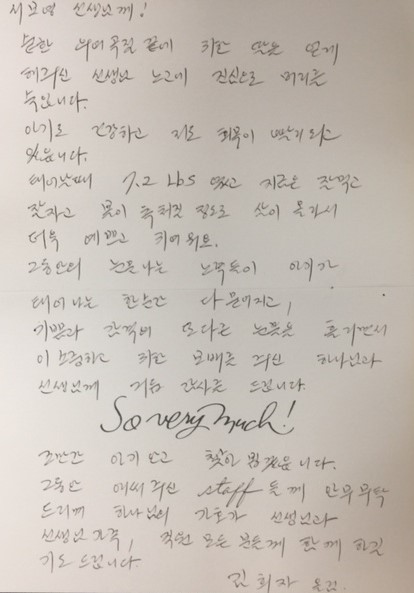 서보영 선생님께!
순한 우여곡절 끝에 귀한 딸을 얻게
해주신 선생님 노고에 진심으로 머리를
숙입니다.
아기도 건강하고 저도 회복이 빨리 되고
있습니다.
태어날때 7.2 Lbs 였고 지금은 잘먹고
잘자고 볼이 축 쳐질 정도로 살이 올라서
더욱 예쁘고 귀여워요.
그동안의 눈물나는 노력들이 아기가
태어나는 한순간 다 무너지고,
기쁨과 감격의 또다른 눈물을 흘리면서
이 소중하고 귀한 보배를 주신 하나님과
선생님께 거듭 감사를 드립니다.
So very much!
조만간 아기 안고 찾아 뵙겠습니다.
그동안 애써주신 staff 들께 안부 부탁
드리며 하나님의 가호가 선생님과
선생님 가족, 직원 모든 분들께 함께 하길
기도 드립니다.
김희자 올림.